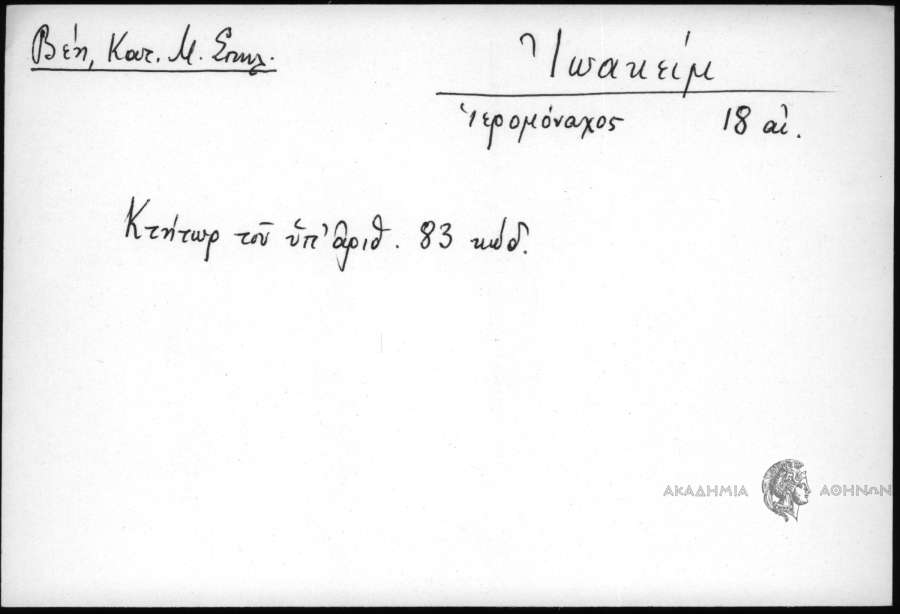 Βέη, Κατ. Μ. Σπηλ.
Ἰωακείμ
ἱερομόναχος 18 αἰ.
Κτήτωρ τοῦ ὑπ' ἀριθ. 83 κώδ.
ΑΚΑΔΗΜΙΑ ΑΘΗΝΩΝ